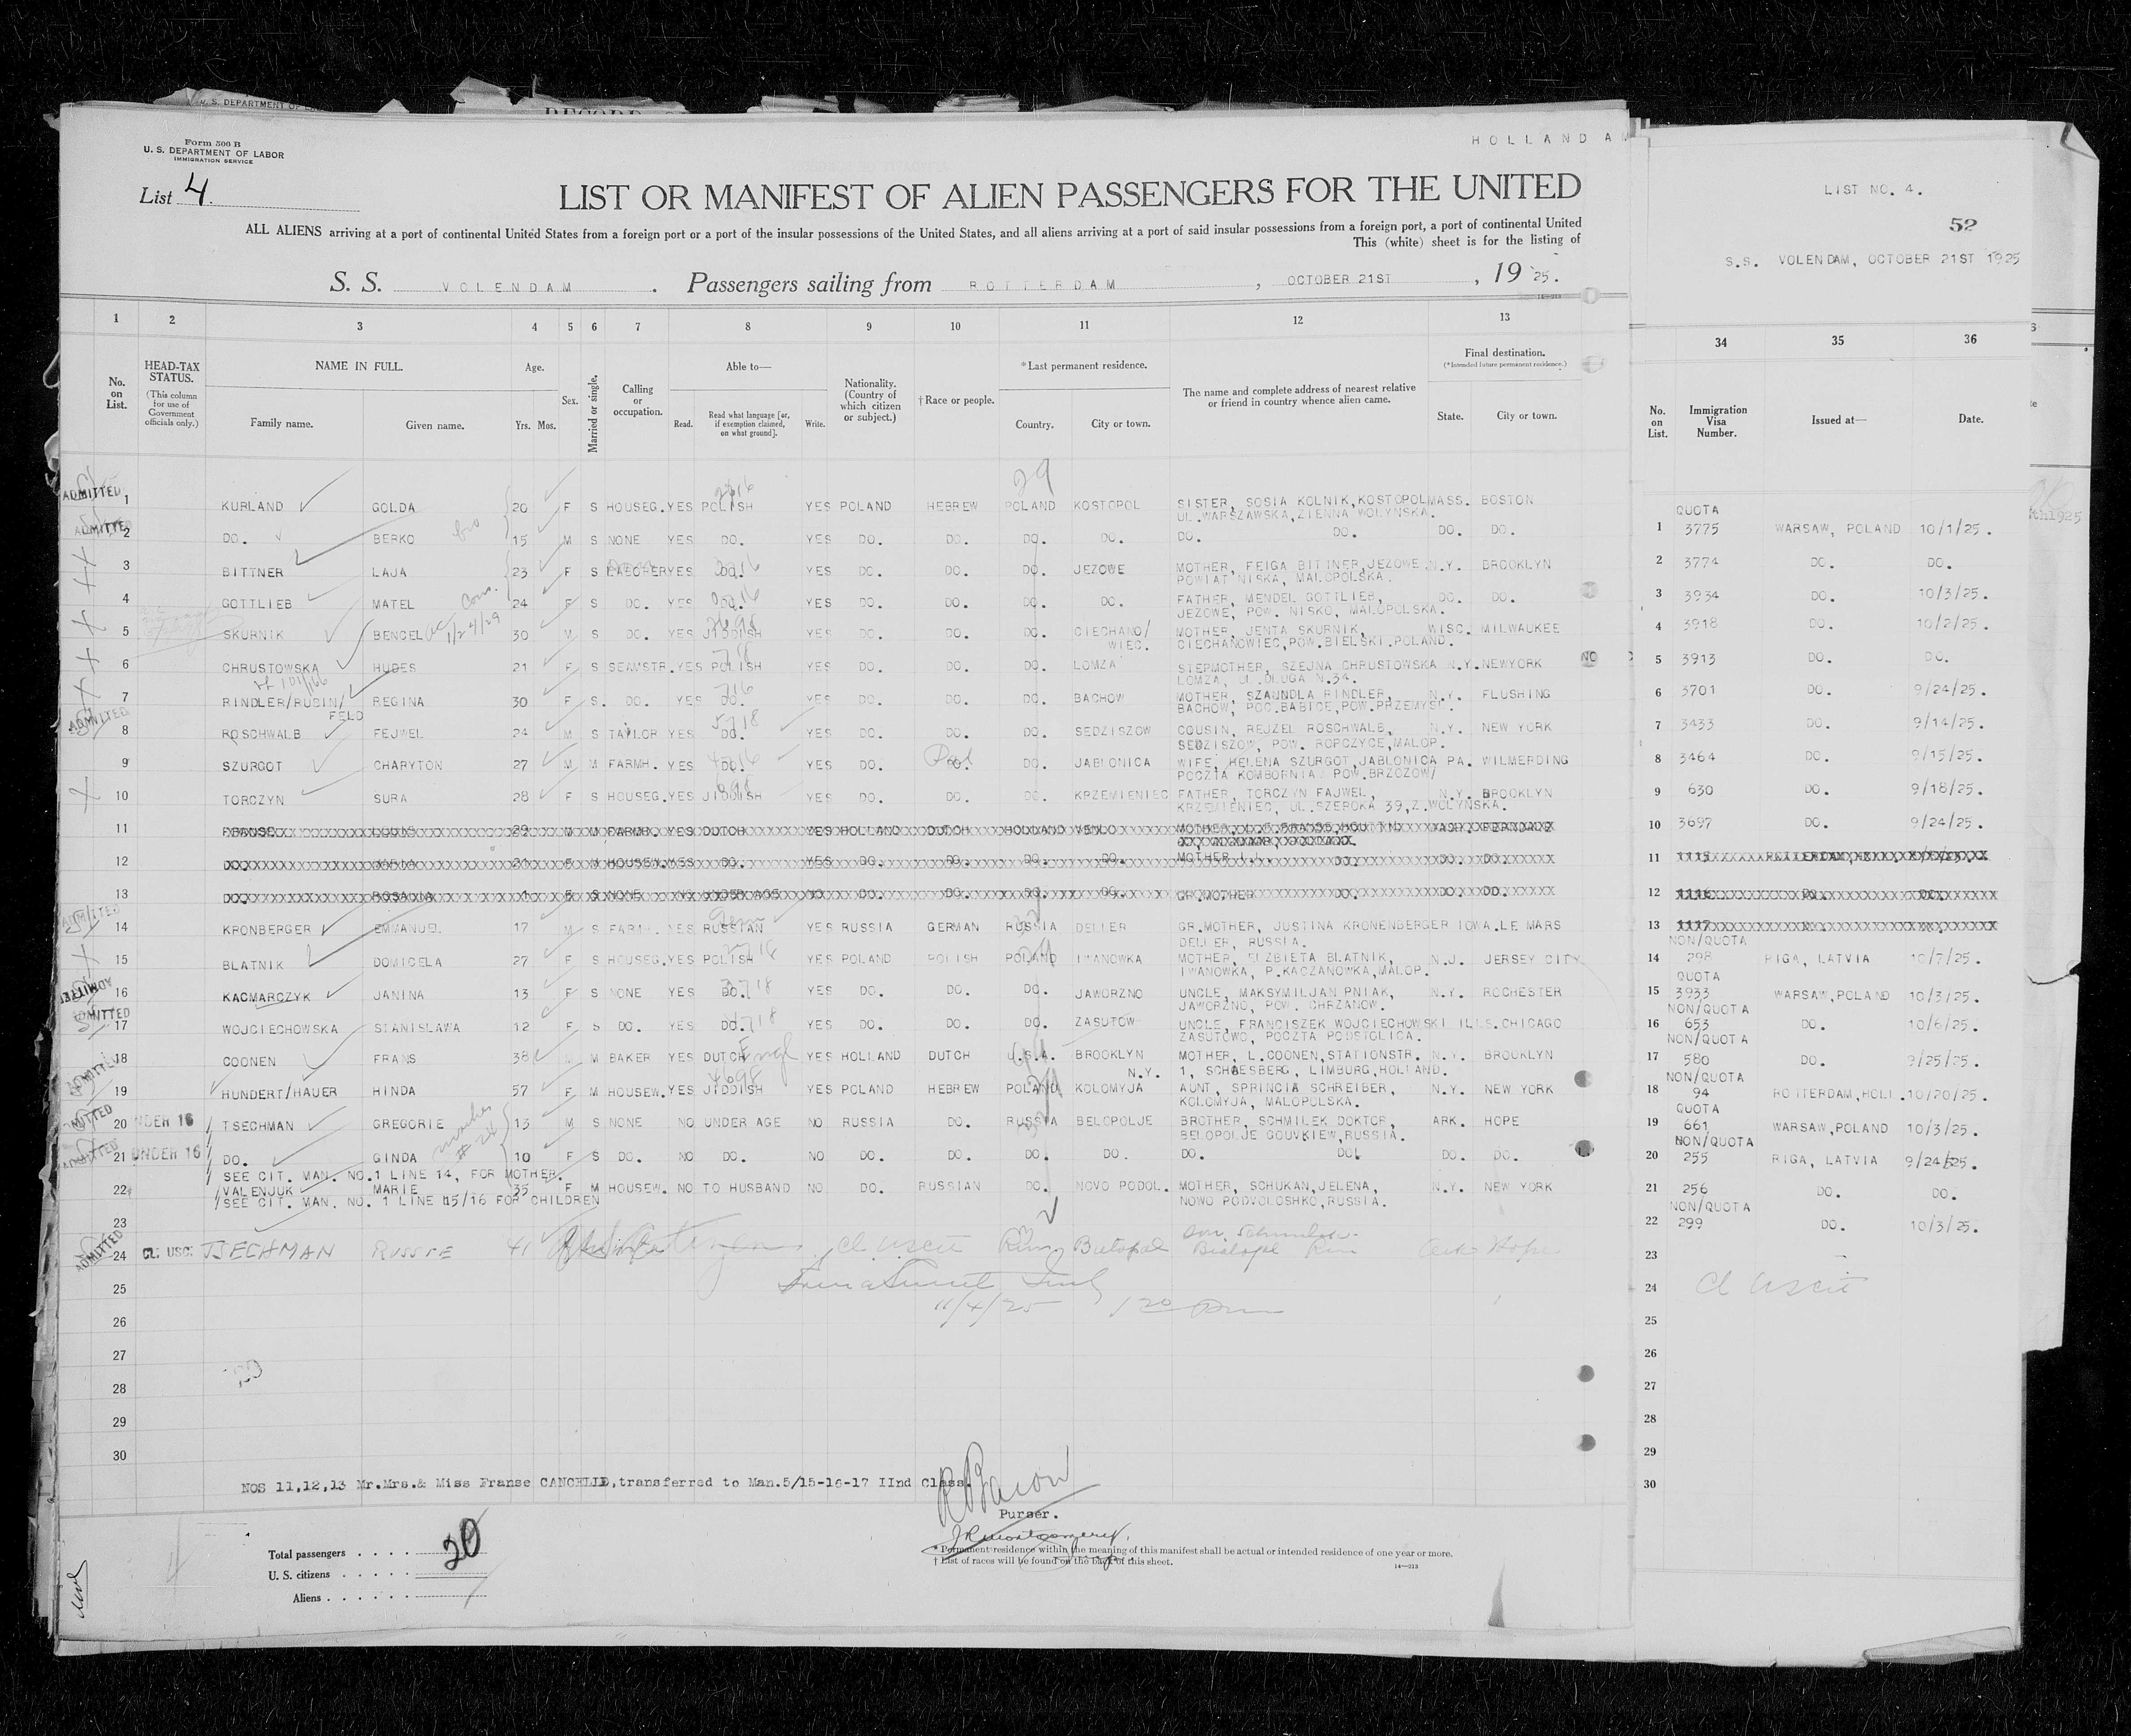 U. S. DEPARTMENT OF
RECORD
Form 500 B
U. S. DEPARTMENT OF LABOR
IMMIGRATION SERVICE
HOLLAND AM
List 4.
LIST OR MANIFEST OF ALIEN PASSENGERS FOR THE UNITED
ALL ALIENS arriving at a port of continental United States from a foreign port or a port of the insular possessions of the United States, and all aliens arriving at a port of said insular possessions from a foreign port, a port of continental United
This (white) sheet is for the listing of
S. S. VOLENDAM. Passengers sailing from ROTTERDAM, OCTOBER 21ST, 19 25.
1 2 3 4 5 6 7 8 9 10 11 12 13
No. on List.
HEAD-TAX STATUS. (This column for use of Government officials only.)
NAME IN FULL. Family name. Given name.
Age. Yrs. Mos.
Sex.
Married or single.
Calling or occupation.
Able to— Read. Read what language [or, if exemption claimed, on what ground]. Write.
Nationality. (Country of which citizen or subject.)
† Race or people.
* Last permanent residence. Country. City or town.
The name and complete address of nearest relative or friend in country whence alien came.
Final destination. (* Intended future permanent residence.) State. City or town.
29
ADMITTED 1 KURLAND GOLDA 20 F S HOUSEG. YES POLISH YES POLAND HEBREW POLAND KOSTOPOL SISTER, SOSIA KOLNIK, KOSTOPOL MASS. BOSTON
UL.WARSZAWSKA, ZIENNA WOLYNSKA.
ADMITTED 2 DO. BERKO bro 15 M S NONE YES DO. YES DO. DO. DO. DO. DO. DO. DO. DO.
3 BITTNER LAJA 23 F S LABORER YES DO. YES DO. DO. DO. JEZOWE MOTHER, FEIGA BITTNER, JEZOWE N.Y. BROOKLYN
POWIAT NISKA, MALOPOLSKA.
4 GOTTLIEB MATEL 24 F S DO. YES DO. YES DO. DO. DO. DO. FATHER, MENDEL GOTTLIEB, DO. DO.
JEZOWE, POW. NISKO, MALOPOLSKA.
5 SKURNIK BENCEL 1/24/29 30 M S DO. YES JIDDISH YES DO. DO. DO. CIECHANO/ MOTHER, JENTA SKURNIK, WISC. MILWAUKEE
WIEC. CIECHANOWIEC, POW.BIELSKI.POLAND.
6 CHRUSTOWSKA HUDES 21 F S SEAMSTR. YES POLISH YES DO. DO. DO. LOMZA STEPMOTHER, SZEJNA CHRUSTOWSKA N.Y. NEWYORK
LOMZA, UL.DLUGA N.34.
7 RINDLER/RUBIN/ REGINA 30 F S. DO. YES DO. YES DO. DO. DO. BACHOW MOTHER, SZAUNDLA RINDLER, N.Y. FLUSHING
FELD BACHOW, POC.BABICE, POW.PRZEMYSL.
ADMITTED 8 ROSCHWALB FEJWEL 24 M S TAYLOR YES DO. YES DO. DO. DO. SEDZISZOW COUSIN, REJZEL ROSCHWALB, N.Y. NEW YORK
SEDZISZOW, POW. ROPCZYCE, MALOP.
9 SZURGOT CHARYTON 27 M M FARMH. YES DO. YES DO. DO. Pol DO. JABLONICA WIFE, HELENA SZURGOT, JABLONICA PA. WILMERDING
POCZTA KOMBORNIA POW.BRZOZOW/
10 TORCZYN SURA 28 F S HOUSEG. YES JIDDISH YES DO. DO. DO. KRZEMIENIEC FATHER, TORCZYN FAJWEL, N.Y. BROOKLYN
KRZEMIENIEC, UL.SZEROKA 39, Z.WOLYNSKA.
11 FRANSE LOUIS 29 M M FARMH. YES DUTCH YES HOLLAND DUTCH HOLLAND VENLO
12 DO. MARIA 21 F M HOUSEW. YES DO. YES DO. DO. DO. DO. MOTHER DO. DO. DO.
13 DO. ROSALIA 1 F S NONE NO UNDER AGE NO DO. DO. DO. DO. GR.MOTHER DO. DO. DO.
14 KRONBERGER EMMANUEL 17 M S FARMH. YES RUSSIAN YES RUSSIA GERMAN RUSSIA DELLER GR.MOTHER, JUSTINA KRONENBERGER IOWA.LE MARS
DELLER, RUSSIA.
15 BLATNIK DOMICELA 27 F S HOUSEG. YES POLISH YES POLAND POLISH POLAND IWANOWKA MOTHER, ELZBIETA BLATNIK, N.J. JERSEY CITY
IWANOWKA, P.KACZANOWKA, MALOP.
ADMITTED 16 KACMARCZYK JANINA 13 F S NONE YES DO. YES DO. DO. DO. JAWORZNO UNCLE, MAKSYMILJAN PNIAK, N.Y. ROCHESTER
JAWORZNO, POW. CHRZANOW.
ADMITTED 17 WOJCIECHOWSKA STANISLAWA 12 F S DO. YES DO. YES DO. DO. DO. ZASUTOW UNCLE, FRANCISZEK WOJCIECHOWSKI ILLS. CHICAGO
ZASUTOWO, POCZTA PODSTOLICA.
18 COONEN FRANS 38 M M BAKER YES DUTCH Engl YES HOLLAND DUTCH U.S.A. BROOKLYN MOTHER, L.COONEN, STATIONSTR. N.Y. BROOKLYN
N.Y. 1, SCHAESBERG, LIMBURG, HOLLAND.
ADMITTED 19 HUNDERT/HAUER HINDA 57 F M HOUSEW. YES JIDDISH YES POLAND HEBREW POLAND KOLOMYJA AUNT, SPRINCIA SCHREIBER, N.Y. NEW YORK
KOLOMYJA, MALOPOLSKA.
ADMITTED 20 UNDER 16 TSECHMAN GREGORIE 13 M S NONE NO UNDER AGE NO RUSSIA DO. RUSSIA BELOPOLJE BROTHER, SCHMILEK DOKTOR, ARK. HOPE
BELOPOLJE GOUVKIEW, RUSSIA.
ADMITTED 21 UNDER 16 DO. GINDA mother #24 10 F S DO. NO DO. NO DO. DO. DO. DO. DO. DO. DO. DO.
SEE CIT. MAN. NO.1 LINE 14, FOR MOTHER.
22 VALENJUK MARIE 35 F M HOUSEW. NO TO HUSBAND NO DO. RUSSIAN DO. NOVO PODOL. MOTHER, SCHUKAN, JELENA, N.Y. NEW YORK
SEE CIT. MAN. NO. 1 LINE 15/16 FOR CHILDREN NOWO PODVOLOSHKO, RUSSIA.
23
ADMITTED 24 CL: USC: TSECHMAN RUSSIE 41 Hope
25
11/4/25 1 20 pm
26
27
28
29
30
NOS 11,12,13 Mr.Mrs.& Miss Franse CANCELLED, transferred to Man.5/15-16-17 IInd Class.
Purser.
Total passengers . . . . 20
U. S. citizens . . . . .
Aliens . . . . . .
* Permanent residence within the meaning of this manifest shall be actual or intended residence of one year or more.
† List of races will be found on the back of this sheet.
14—313
LIST NO. 4.
52
S.S. VOLENDAM, OCTOBER 21ST 1925
34 35 36
No. on List. Immigration Visa Number. Issued at— Date.
QUOTA
1 3775 WARSAW, POLAND 10/1/25.
2 3774 DO. DO.
3 3934 DO. 10/3/25.
4 3918 DO. 10/2/25.
5 3913 DO. DO.
6 3701 DO. 9/24/25.
7 3433 DO. 9/14/25.
8 3464 DO. 9/15/25.
9 630 DO. 9/18/25.
10 3697 DO. 9/24/25.
11 1115
12 1116 DO. DO.
13 1117
NON/QUOTA
14 298 RIGA, LATVIA 10/7/25.
QUOTA
15 3933 WARSAW, POLAND 10/3/25.
NON/QUOTA
16 653 DO. 10/6/25.
NON/QUOTA
17 580 DO. 9/25/25.
NON/QUOTA
18 94 ROTTERDAM, HOLL. 10/20/25.
QUOTA
19 661 WARSAW, POLAND 10/3/25.
NON/QUOTA
20 255 RIGA, LATVIA 9/24/25.
21 256 DO. DO.
NON/QUOTA
22 299 DO. 10/3/25.
23
24
25
26
27
28
29
30